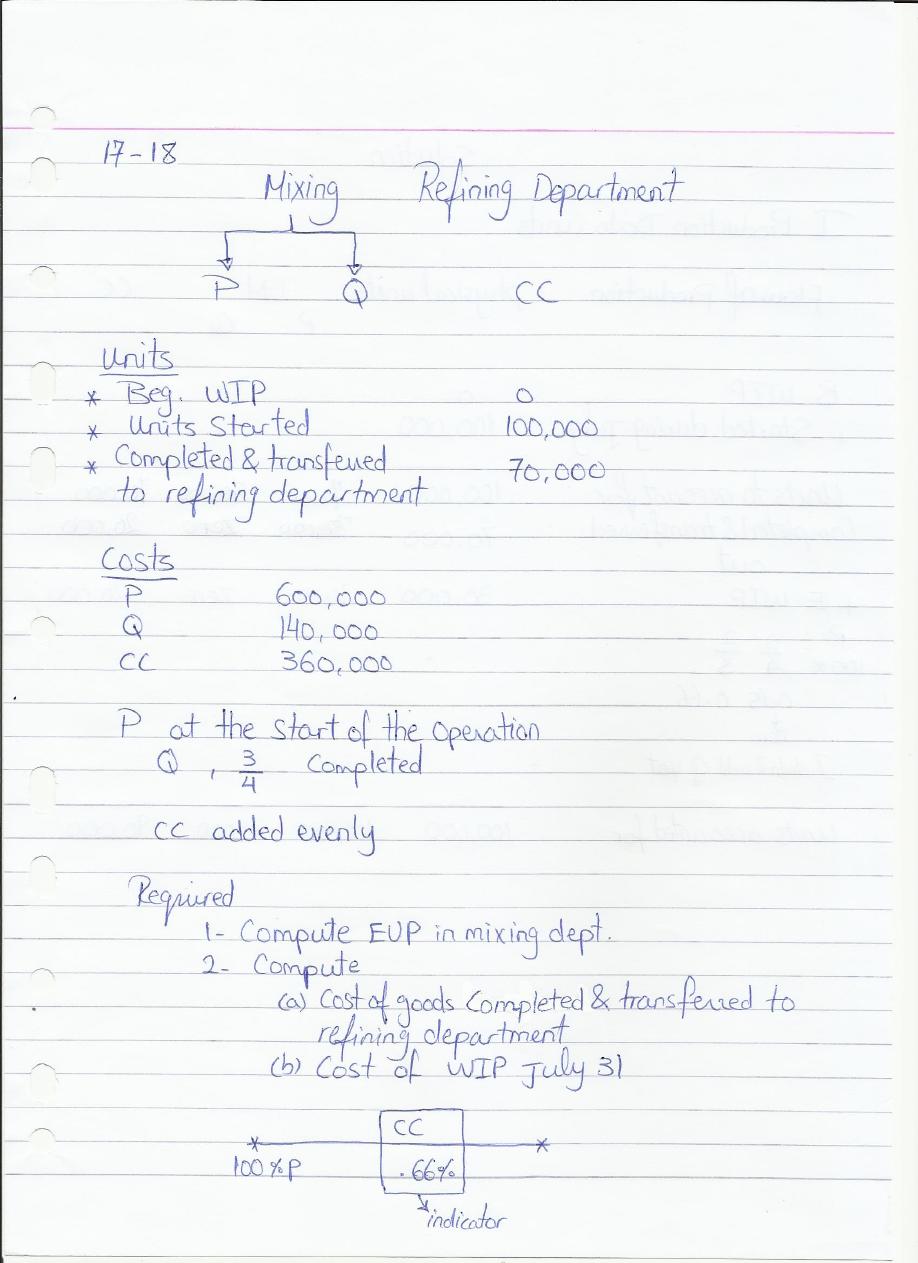 17-18
Mixing Refining Department
P Q CC
Units
* Beg. WIP 0
* Units Started 100,000
* Completed & transferred 70,000
to refining department
Costs
P 600,000
Q 140,000
CC 360,000
P at the start of the operation
Q , 3/4 Completed
CC added evenly
Required
1- Compute EUP in mixing dept.
2- Compute
(a) Cost of goods Completed & transferred to
refining department
(b) Cost of WIP July 31
CC
100%P .66%
indicator